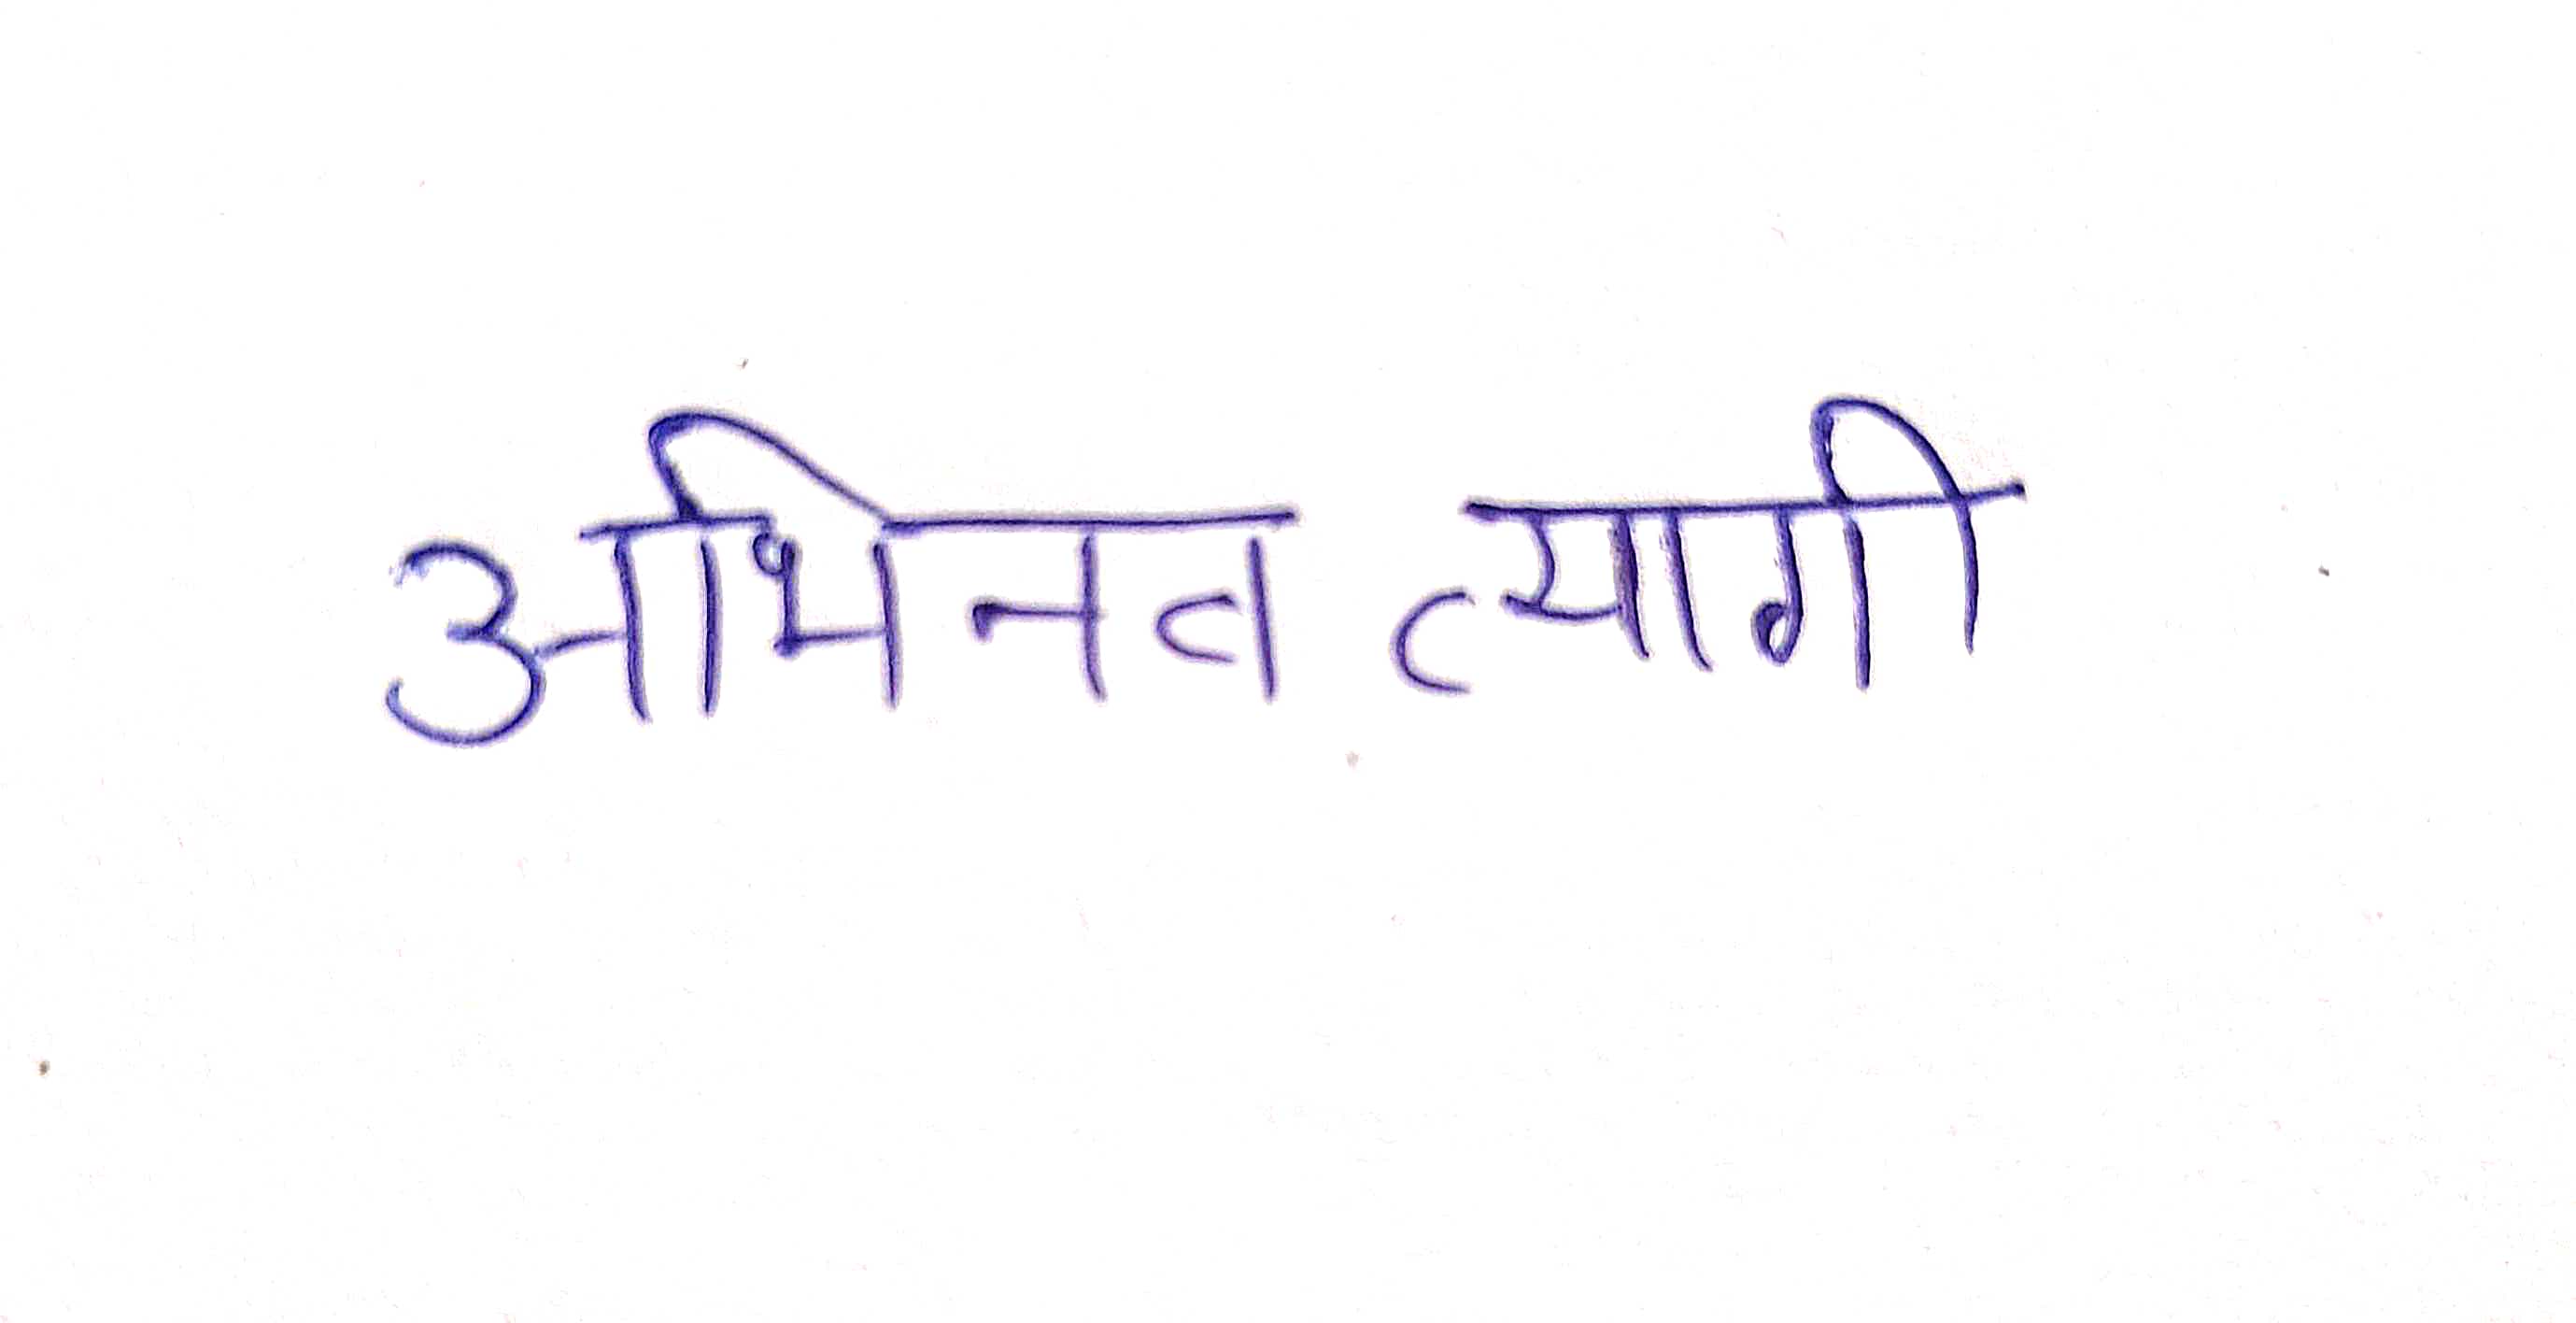 अभिनव त्यागी